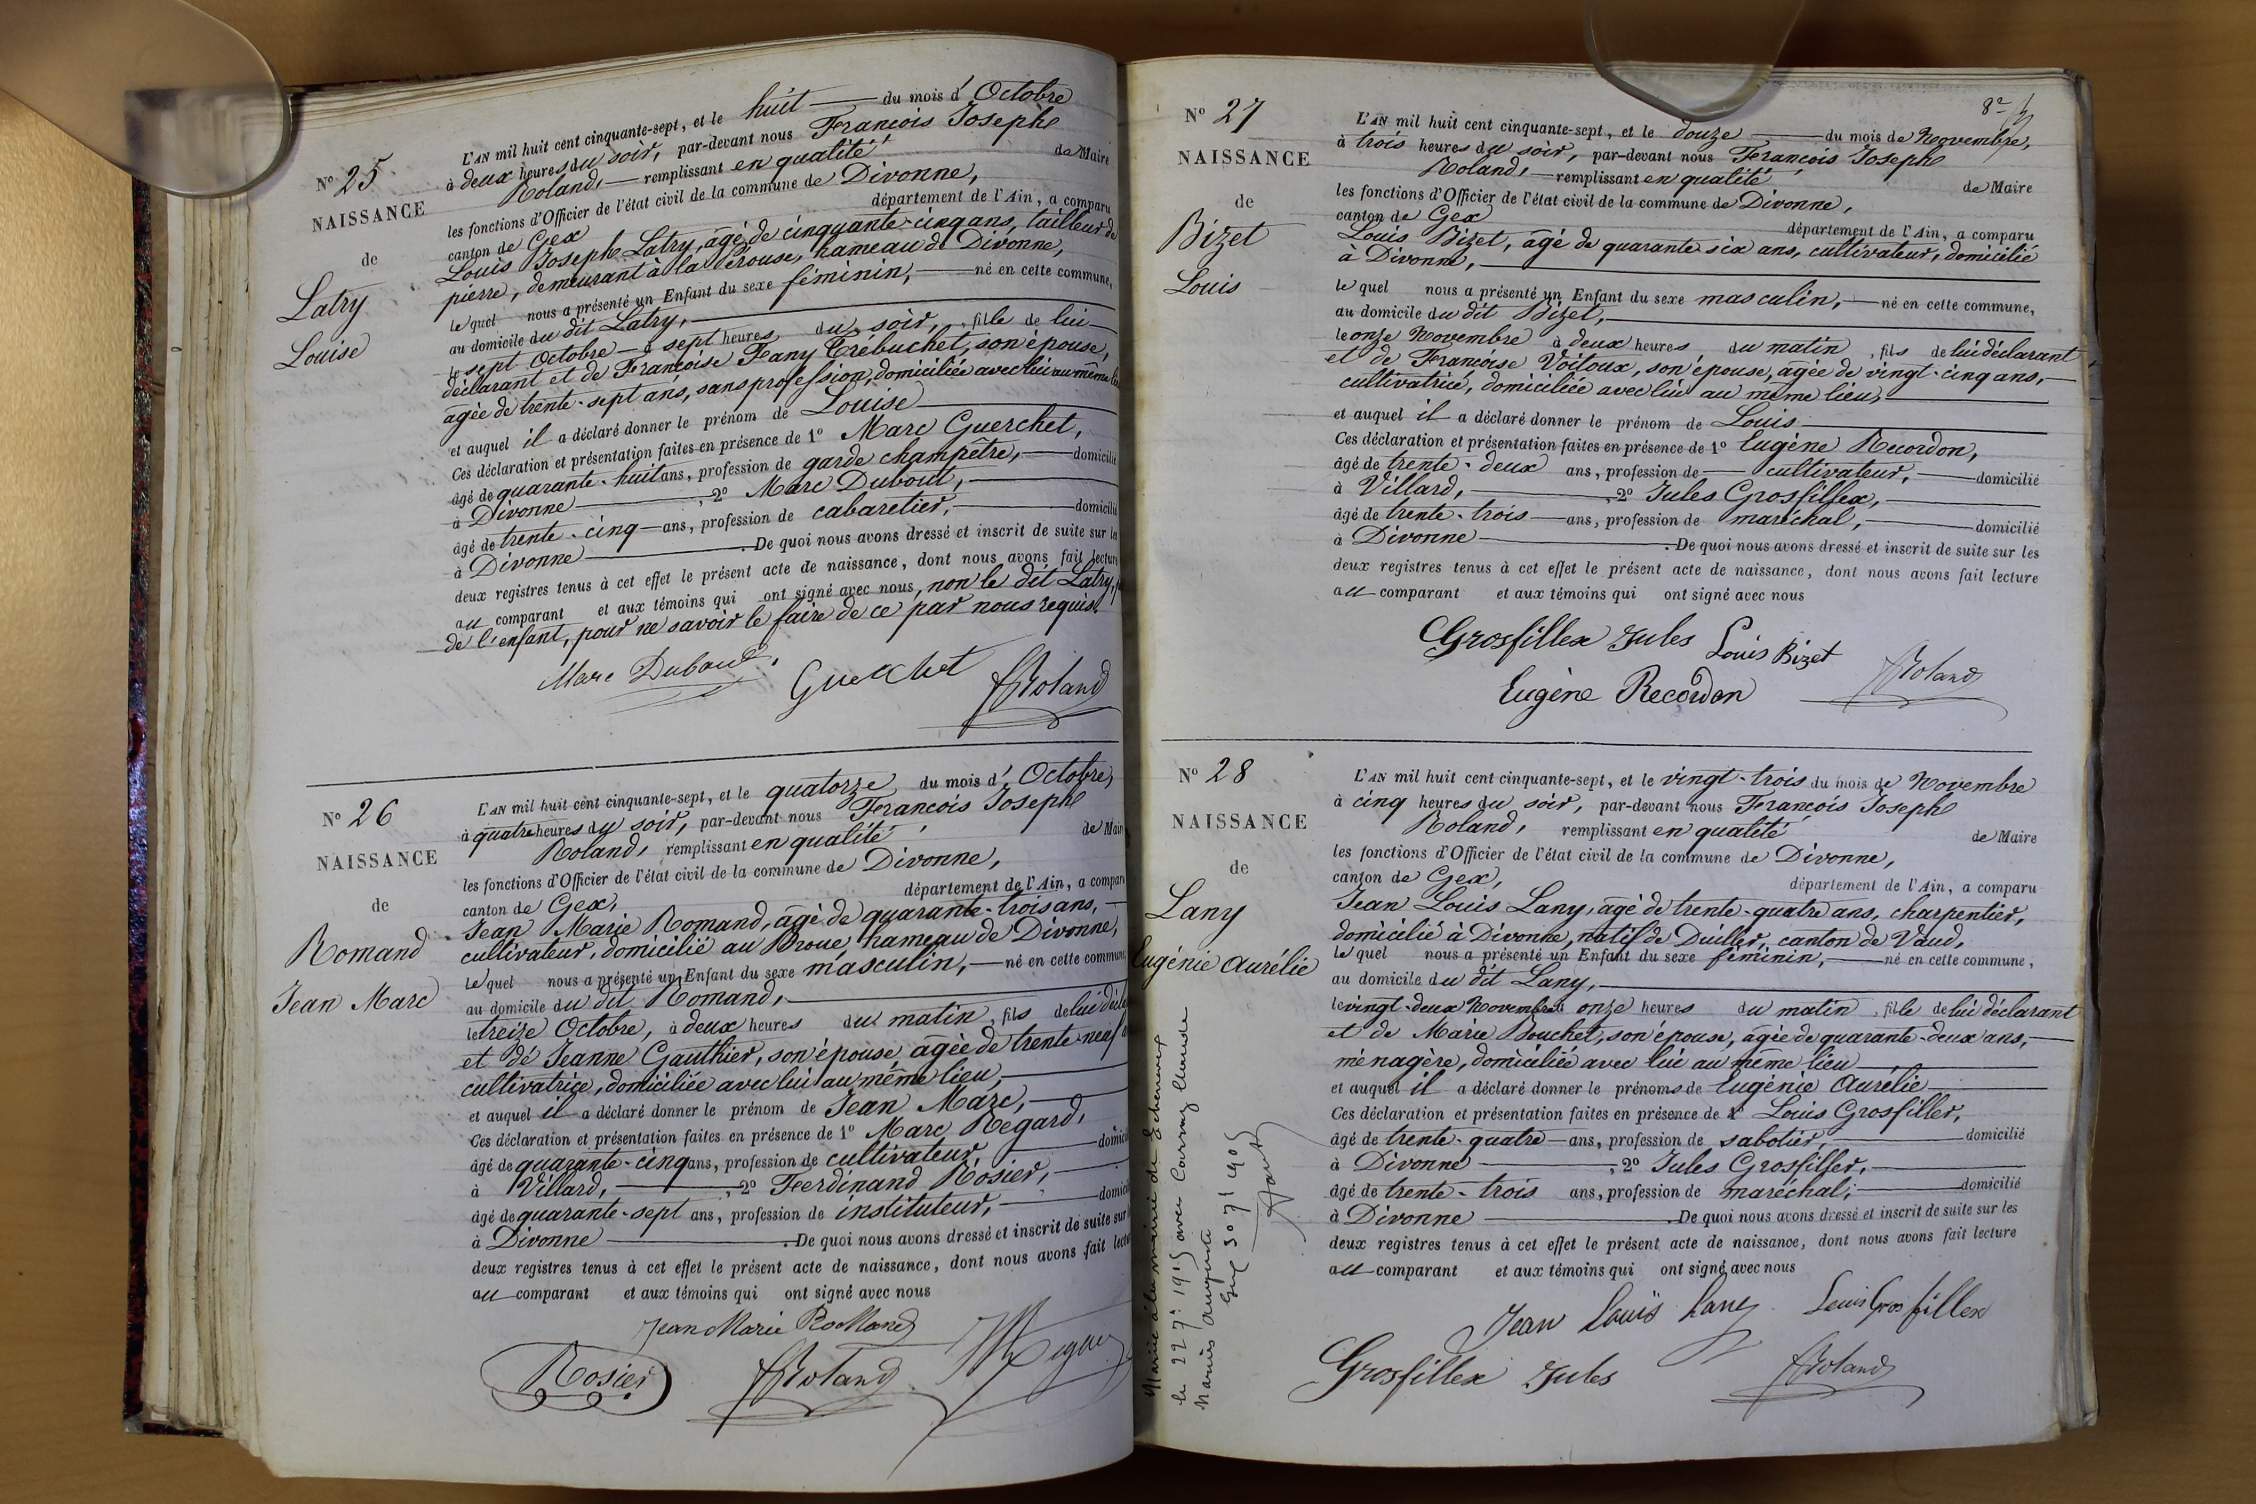 N° 25
NAISSANCE
de
Latry
Louise
L'AN mil huit cent cinquante-sept, et le huit du mois d'Octobre
à deux heures du soir, par-devant nous François Joseph
Roland, remplissant en qualité de Maire
les fonctions d'Officier de l'état civil de la commune de Divonne,
canton de Gex département de l'Ain, a comparu
Louis Joseph Latry, âgé de cinquante-cinq ans, tailleur de
pierre, demeurant à la Crouse, hameau de Divonne,
lequel nous a présenté un Enfant du sexe féminin, né en cette commune,
au domicile du dit Latry,
le sept Octobre à sept heures du soir, fille de lui
déclarant et de Françoise Fany Trébuchet, son épouse,
agée de trente-sept ans, sans profession, domiciliée avec lui au même
et auquel il a déclaré donner le prénom de Louise
Ces déclaration et présentation faites en présence de 1° Marc Guerchet,
âgé de quarante-huit ans, profession de garde champêtre, domicilié
à Divonne, 2° Marc Dubout,
âgé de trente-cinq ans, profession de cabaretier, domicilié
à Divonne. De quoi nous avons dressé et inscrit de suite sur les
deux registres tenus à cet effet le présent acte de naissance, dont nous avons fait lecture
au comparant et aux témoins qui ont signé avec nous, non le dit Latry,
de l'enfant, pour ne savoir le faire de ce par nous requis.
Marc Dubout. Guerchet Roland
N° 26
NAISSANCE
de
Romand
Jean Marc
L'AN mil huit cent cinquante-sept, et le quatorze du mois d'Octobre,
à quatre heures du soir, par-devant nous François Joseph
Roland, remplissant en qualité de Maire
les fonctions d'Officier de l'état civil de la commune de Divonne,
canton de Gex, département de l'Ain, a comparu
Jean Marie Romand, âgé de quarante-trois ans,
cultivateur, domicilié au Broue, hameau de Divonne,
lequel nous a présenté un Enfant du sexe masculin, né en cette commune
au domicile du dit Romand,
le treize Octobre, à deux heures du matin, fils de lui
et de Jeanne Gauthier, son épouse agée de trente-neuf
cultivatrice, domiciliée avec lui au même lieu,
et auquel il a déclaré donner le prénom de Jean Marc,
Ces déclaration et présentation faites en présence de 1° Marc Regard,
âgé de quarante-cinq ans, profession de cultivateur,
à Villard, 2° Ferdinand Rosier,
âgé de quarante-sept ans, profession de instituteur,
à Divonne. De quoi nous avons dressé et inscrit de suite sur
deux registres tenus à cet effet le présent acte de naissance, dont nous avons fait
au comparant et aux témoins qui ont signé avec nous
Jean Marie Romand
Rosier Roland
8e
N° 27
NAISSANCE
de
Bizet
Louis
L'AN mil huit cent cinquante-sept, et le douze du mois de Novembre,
à trois heures du soir, par-devant nous François Joseph
Roland, remplissant en qualité de Maire
les fonctions d'Officier de l'état civil de la commune de Divonne,
canton de Gex département de l'Ain, a comparu
Louis Bizet, âgé de quarante six ans, cultivateur, domicilié
à Divonne,
lequel nous a présenté un Enfant du sexe masculin, né en cette commune,
au domicile du dit Bizet,
le onze Novembre à deux heures du matin, fils de lui déclarant
et de Françoise Voitoux, son épouse, âgée de vingt-cinq ans,
cultivatrice, domiciliée avec lui au même lieu,
et auquel il a déclaré donner le prénom de Louis
Ces déclaration et présentation faites en présence de 1° Eugène Recordon,
âgé de trente-deux ans, profession de cultivateur, domicilié
à Villard, 2° Jules Grosfillex,
âgé de trente-trois ans, profession de maréchal, domicilié
à Divonne. De quoi nous avons dressé et inscrit de suite sur les
deux registres tenus à cet effet le présent acte de naissance, dont nous avons fait lecture
au comparant et aux témoins qui ont signé avec nous
Grosfillex Jules Louis Bizet Roland
Eugène Recordon
N° 28
NAISSANCE
de
Lany
Eugénie Aurélie
L'AN mil huit cent cinquante-sept, et le vingt-trois du mois de Novembre
à cinq heures du soir, par-devant nous François Joseph
Roland, remplissant en qualité de Maire
les fonctions d'Officier de l'état civil de la commune de Divonne,
canton de Gex, département de l'Ain, a comparu
Jean Louis Lany, âgé de trente-quatre ans, charpentier,
domicilié à Divonne, natif de Duiller, canton de Vaud,
lequel nous a présenté un Enfant du sexe féminin, né en cette commune,
au domicile du dit Lany,
le vingt-deux Novembre à onze heures du matin, fille de lui déclarant
et de Marie Bouchet, son épouse, âgée de quarante-deux ans,
ménagère, domiciliée avec lui au même lieu
et auquel il a déclaré donner le prénoms de Eugénie Aurélie
Ces déclaration et présentation faites en présence de 1° Louis Grosfiller,
âgé de trente-quatre ans, profession de sabotier, domicilié
à Divonne, 2° Jules Grosfiller,
âgé de trente-trois ans, profession de maréchal, domicilié
à Divonne. De quoi nous avons dressé et inscrit de suite sur les
deux registres tenus à cet effet le présent acte de naissance, dont nous avons fait lecture
au comparant et aux témoins qui ont signé avec nous
Jean Louis Lany Louis Grosfillex
Grosfillex Jules Roland
Mariée à la mairie de Echenevex
le 22 7bre 1905 avec
Marius Auguste
Gex 30 7bre 1905